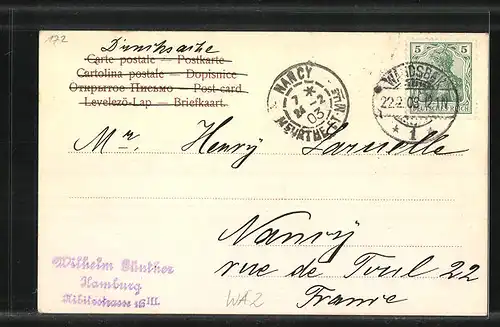 172
Drucksache
Carte postale — Postkarte
Cartolina postale — Dopisnice
Открытое Письмо — Post card
Levelező-Lap — Briefkaart.
NANCY
7 * 24 -2 03
MEURTHE-ET-MLLE
5 5
WANDSBEK
22.2.03.12-1N
* 1 *
Mr. Henry Laruelle
Nancy
rue de Toul 22
France
Wilhelm Günther
Hamburg
III.
WA2